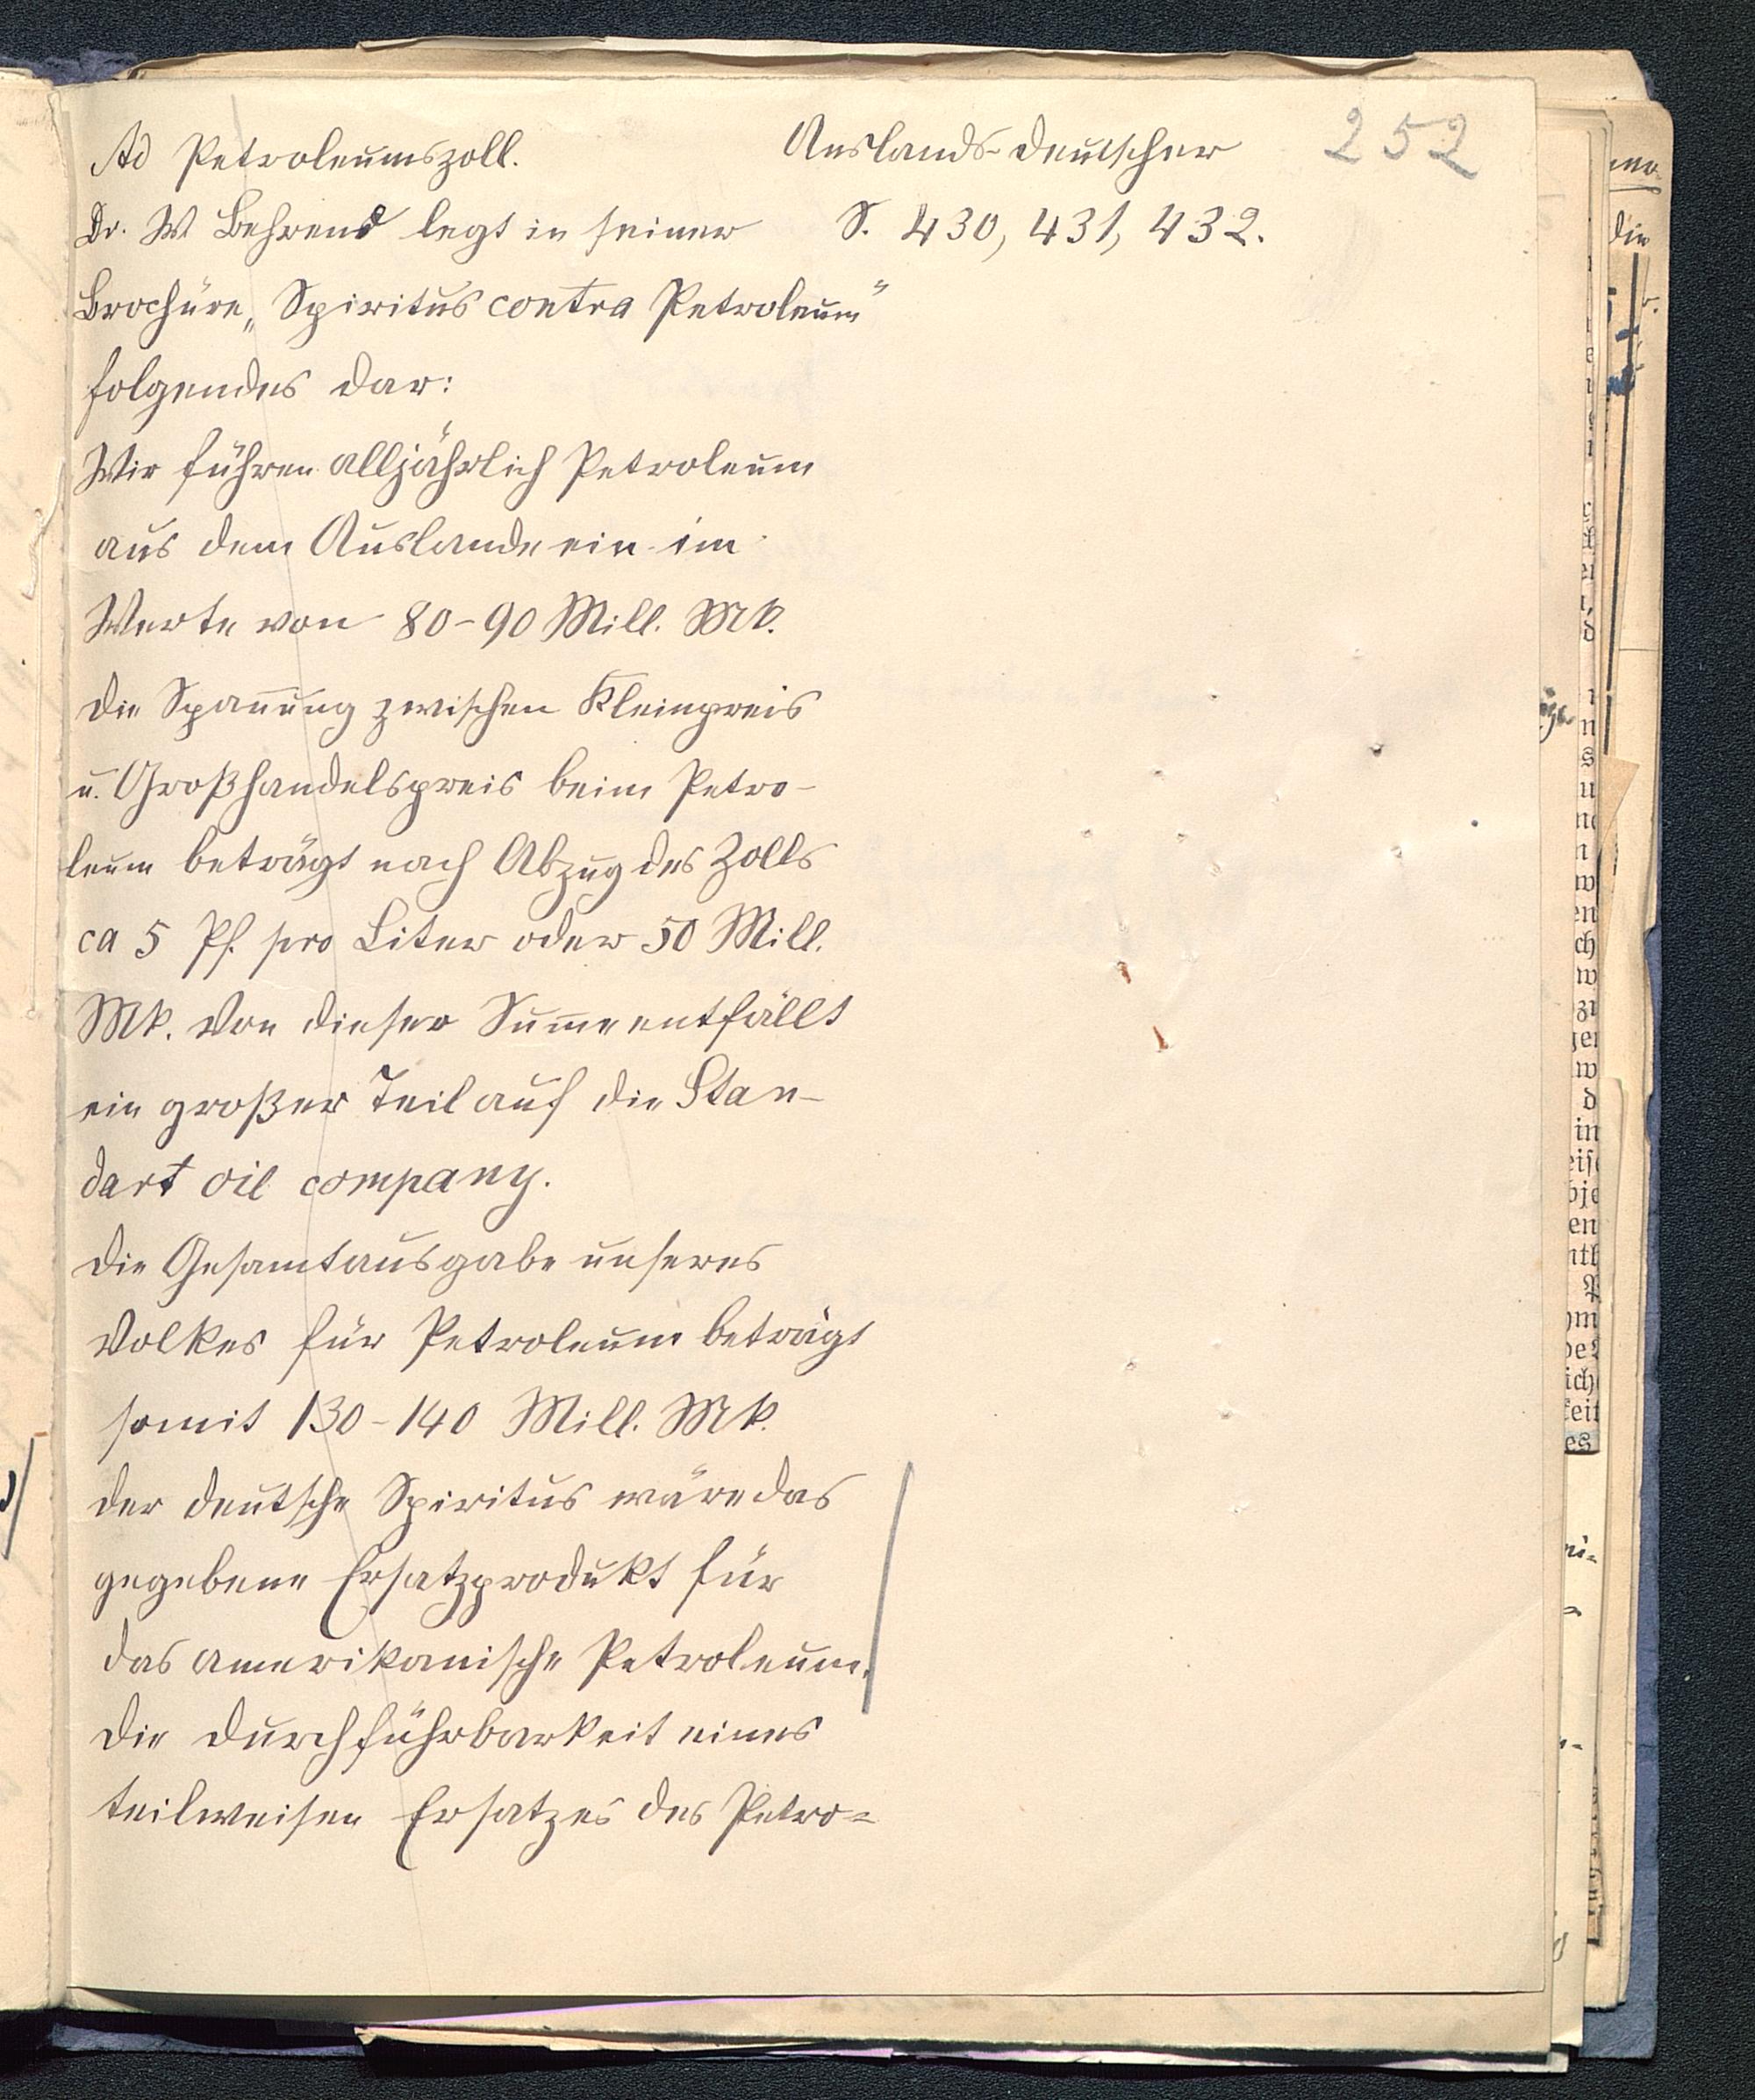 252
Ad Petroleumszoll.
Auslands-deutscher
S. 430, 431, 432.
Dr. W. Behrend legt in seiner
Brochüre „Spiritus contra Petroleum"
folgendes dar:
Wir führen alljährlich Petroleum
aus dem Auslande ein im
Werte von 80-90 Mill. Mk.
Die Spannung zwischen Kleinpreis
u. Großhandelspreis beim Petro-
leum beträgt nach Abzug des Zolls
ca 5 Pf. pro Liter oder 50 Mill.
Mk. Von dieser Summe entfällt
ein großer Teil auf die Stan-
dart oil company.
Die Gesamtausgabe unseres
Volkes für Petroleum beträgt
somit 130-140 Mill. Mk.
Der deutsche Spiritus wäre das
gegebene Ersatzprodukt für
das amerikanische Petroleum.
Die Durchführbarkeit eines
teilweisen Ersatzes des Petro=